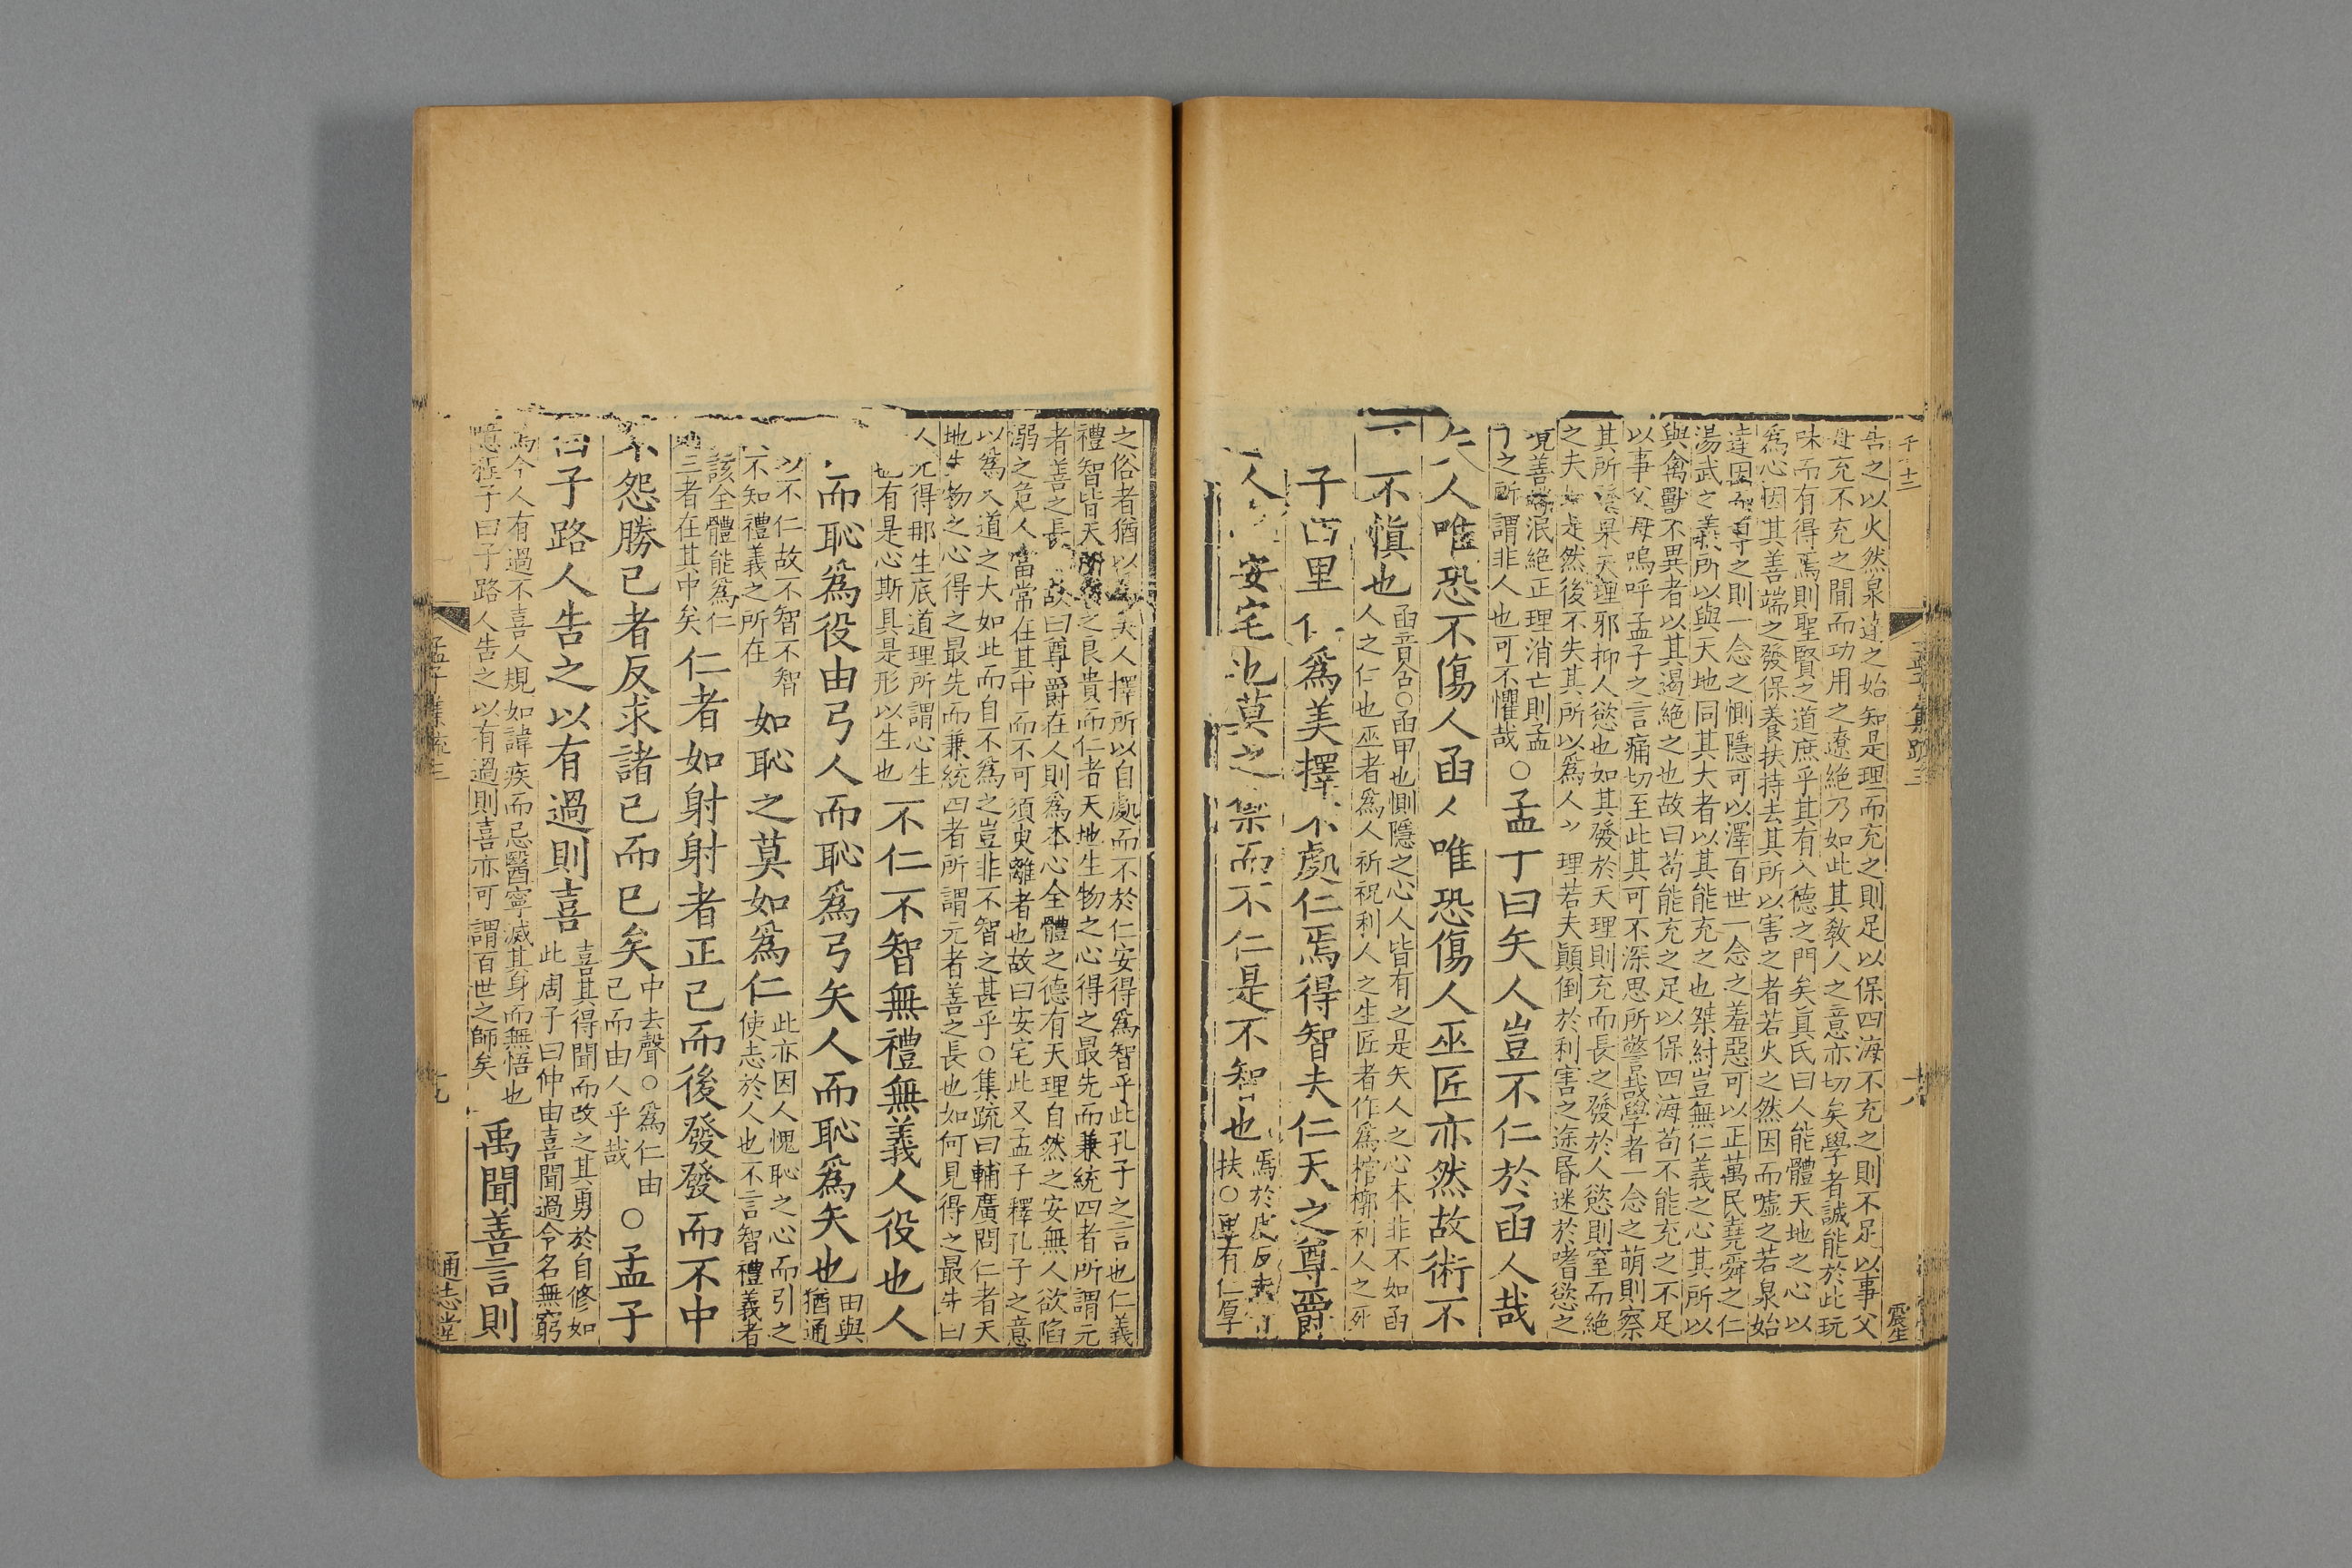 孟子集疏三
震生
告之以火然泉達之始知是理而充之則足以保四海不充之則不足以事父
母充不充之間而功用之遼絶乃如此其教人之意亦切矣學者誠能於此玩
味而有得焉則聖賢之道庶乎其有入德之門矣真氏曰人能體天地之心以
爲心因其善端之發保養扶持去其所以害之者若火之然因而噓之若泉始
達因而導之則一念之惻隱可以澤百世一念之羞惡可以正萬民堯舜之仁
湯武之義所以與天地同其大者以其能充之也桀紂豈無仁義之心其所以
與禽獸不異者以其遏絶之也故曰苟能充之足以保四海苟不能充之不足
以事父母嗚呼孟子之言痛切至此其可不深思所警哉學者一念之萌則察
其所發果天理邪抑人慾也如其發於天理則充而長之發於人慾則窒而絶
之夫如是然後不失其所以爲人之理若夫顚倒於利害之途昏迷於嗜慾之
境善端泯絶正理消亡則孟
子之所謂非人也可不懼哉
○孟子曰矢人豈不仁於函人哉
矢人唯恐不傷人函人唯恐傷人巫匠亦然故術不
可不愼也
函音含○函甲也惻隱之心人皆有之是矢人之心本非不如函
人之仁也巫者爲人祈祝利人之生匠者作爲棺槨利人之死
子曰里仁爲美擇不處仁焉得智夫仁天之尊爵
人安宅也莫之禦而不仁是不智也
焉於虔反夫
扶○里有仁厚
之俗者猶以爲美人擇所以自處而不於仁安得爲智乎此孔子之言也仁義
禮智皆天所與之良貴而仁者天地生物之心得之最先而兼統四者所謂元
者善之長也故曰尊爵在人則爲本心全體之德有天理自然之安無人欲陷
溺之危人當常在其中而不可須臾離者也故曰安宅此又孟子釋孔子之意
以爲仁道之大如此而自不爲之豈非不智之甚乎○集疏曰輔廣問仁者天
地生物之心得之最先而兼統四者所謂元者善之長也如何見得之最先曰
人先得那生底道理所謂心生
也有是心斯具是形以生也
不仁不智無禮無義人役也人
役而恥爲役由弓人而恥爲弓矢人而恥爲矢也
由與
猶通
以不仁故不智不智
故不知禮義之所在
如恥之莫如爲仁
此亦因人愧恥之心而引之
使志於人也不言智禮義者
仁該全體能爲仁
則三者在其中矣
仁者如射射者正己而後發發而不中
不怨勝己者反求諸己而已矣
中去聲○爲仁由
己而由人乎哉
○孟子
曰子路人告之以有過則喜
喜其得聞而改之其勇於自修如
此周子曰仲由喜聞過令名無窮
焉今人有過不喜人規如諱疾而忌醫寧滅其身而無悟也
噫程子曰子路人告之以有過則喜亦可謂百世之師矣
禹聞善言則
孟子集疏三
十九
通志堂